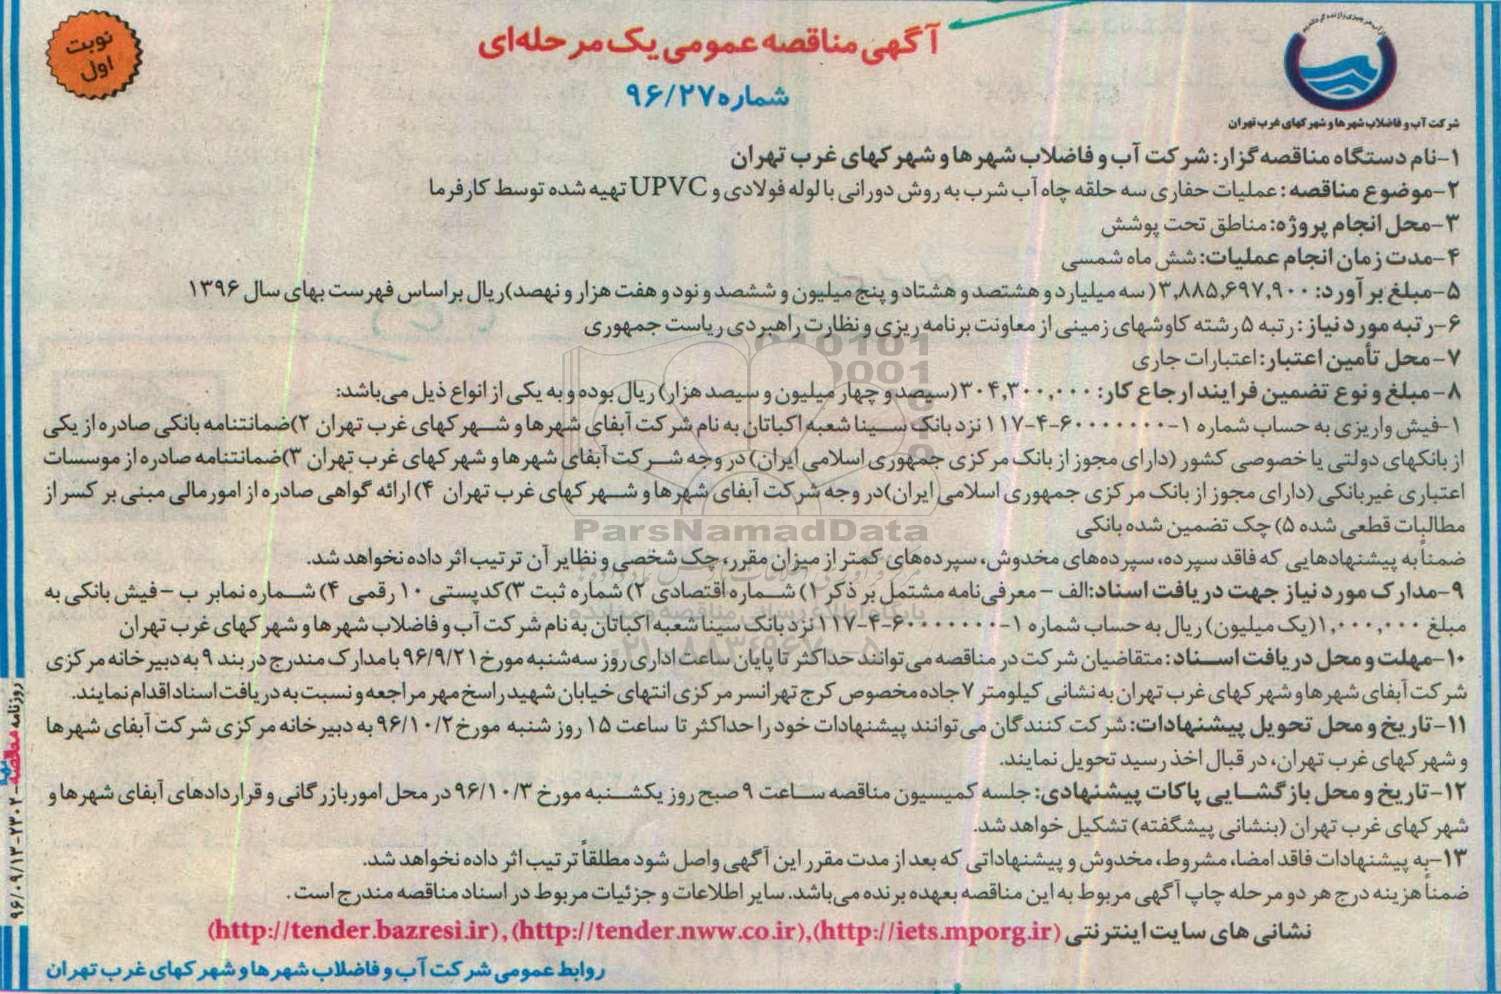 نوبت
اول
آگهی مناقصه عمومی یک مرحله‌ای
شماره ۹۶/۲۷
شرکت آب و فاضلاب شهرها و شهرکهای غرب تهران
۱-نام دستگاه مناقصه گزار: شرکت آب و فاضلاب شهرها و شهرکهای غرب تهران
۲-موضوع مناقصه: عملیات حفاری سه حلقه چاه آب شرب به روش دورانی با لوله فولادی و UPVC تهیه شده توسط کارفرما
۳-محل انجام پروژه: مناطق تحت پوشش
۴-مدت زمان انجام عملیات: شش ماه شمسی
۵-مبلغ برآورد: ۳,۸۸۵,۶۹۷,۹۰۰( سه میلیارد و هشتصد و هشتاد و پنج میلیون و ششصد و نود و هفت هزار و نهصد)ریال براساس فهرست بهای سال ۱۳۹۶
۶-رتبه مورد نیاز: رتبه ۵ رشته کاوشهای زمینی از معاونت برنامه ریزی و نظارت راهبردی ریاست جمهوری
۷-محل تأمین اعتبار: اعتبارات جاری
۸-مبلغ و نوع تضمین فرایند ارجاع کار: ۳۰۴,۳۰۰,۰۰۰ (سیصد و چهار میلیون و سیصد هزار) ریال بوده و به یکی از انواع ذیل می‌باشد:
۱-فیش واریزی به حساب شماره ۱-۶۰۰۰۰۰۰۰-۴-۱۱۷ نزد بانک سینا شعبه اکباتان به نام شرکت آبفای شهرها و شهرکهای غرب تهران ۲)ضمانتنامه بانکی صادره از یکی
از بانکهای دولتی یا خصوصی کشور (دارای مجوز از بانک مرکزی جمهوری اسلامی ایران) در وجه شرکت آبفای شهرها و شهرکهای غرب تهران ۳)ضمانتنامه صادره از موسسات
اعتباری غیربانکی (دارای مجوز از بانک مرکزی جمهوری اسلامی ایران)در وجه شرکت آبفای شهرها و شهرکهای غرب تهران ۴) ارائه گواهی صادره از امور مالی مبنی بر کسر از
مطالبات قطعی شده ۵) چک تضمین شده بانکی
ضمناً به پیشنهادهایی که فاقد سپرده، سپرده‌های مخدوش، سپرده‌های کمتر از میزان مقرر، چک شخصی و نظایر آن ترتیب اثر داده نخواهد شد.
۹-مدارک مورد نیاز جهت دریافت اسناد:الف - معرفی‌نامه مشتمل بر ذکر ۱) شماره اقتصادی ۲) شماره ثبت ۳)کدپستی ۱۰ رقمی ۴) شماره نمابر ب - فیش بانکی به
مبلغ ۱,۰۰۰,۰۰۰(یک میلیون) ریال به حساب شماره ۱-۶۰۰۰۰۰۰۰-۴-۱۱۷ نزد بانک سینا شعبه اکباتان به نام شرکت آب و فاضلاب شهرها و شهرکهای غرب تهران
۱۰-مهلت و محل دریافت اسناد: متقاضیان شرکت در مناقصه می‌توانند حداکثر تا پایان ساعت اداری روز سه‌شنبه مورخ ۹۶/۹/۲۱ با مدارک مندرج در بند ۹ به دبیرخانه مرکزی
شرکت آبفای شهرها و شهرکهای غرب تهران به نشانی کیلومتر ۷ جاده مخصوص کرج تهرانسر مرکزی انتهای خیابان شهید راسخ مهر مراجعه و نسبت به دریافت اسناد اقدام نمایند.
۱۱-تاریخ و محل تحویل پیشنهادات: شرکت کنندگان می‌توانند پیشنهادات خود را حداکثر تا ساعت ۱۵ روز شنبه مورخ ۹۶/۱۰/۲ به دبیرخانه مرکزی شرکت آبفای شهرها
و شهرکهای غرب تهران، در قبال اخذ رسید تحویل نمایند.
۱۲-تاریخ و محل بازگشایی پاکات پیشنهادی: جلسه کمیسیون مناقصه ساعت ۹ صبح روز یکشنبه مورخ ۹۶/۱۰/۳ در محل امور بازرگانی و قراردادهای آبفای شهرها و
شهرکهای غرب تهران (بنشانی پیشگفته) تشکیل خواهد شد.
۱۳-به پیشنهادات فاقد امضا، مشروط، مخدوش و پیشنهاداتی که بعد از مدت مقرر این آگهی واصل شود مطلقاً ترتیب اثر داده نخواهد شد.
ضمناً هزینه درج هر دو مرحله چاپ آگهی مربوط به این مناقصه بعهده برنده می‌باشد. سایر اطلاعات و جزئیات مربوط در اسناد مناقصه مندرج است.
نشانی های سایت اینترنتی (http://iets.mporg.ir),(http://tender.nww.co.ir),(http://tender.bazresi.ir)
روابط عمومی شرکت آب و فاضلاب شهرها و شهرکهای غرب تهران
روزنامه مناقصه - ۲۳۰۴ - ۹۶/۰۹/۱۳
ParsNamadData